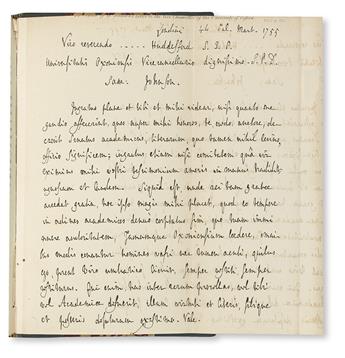 Londini 4to Cal. Mart. 1755
Viro reverendo ..... Huddesford S. T. P.
Universitatis Oxoniensis Vicecancellario dignissimo S. P. D.
Sam. Johnson.
Ingratus plane et tibi et mihi videar, nisi quanto me
gaudio affecerint, quos nuper mihi honores, te credo, auctore, de-
crevit Senatus academicus, literarum, quo tamen nihil levius,
officio significem; ingratus etiam nisi comitatem qua vir
eximius mihi vestri testimonium amoris in manus tradidit
agnoscam et laudem. Siquid est unde rei tam gratae
accedat gratia, hoc ipso magis mihi placet, quod eo tempore
in ordines academicos denuo cooptatus sim, quo tuam immi-
nuere auctoritatem, famamque Oxoniensium laedere, omnibus
modis conantur homines vafri nec tamen acuti, quibus
ego, prout viro umbratico licuit, semper restiti semper
restiturus. Qui enim, inter has rerum procellas, vel tibi
vel Academiae defuerit, illum virtuti et literis, sibique
et posteris defuturum existimo. Vale.